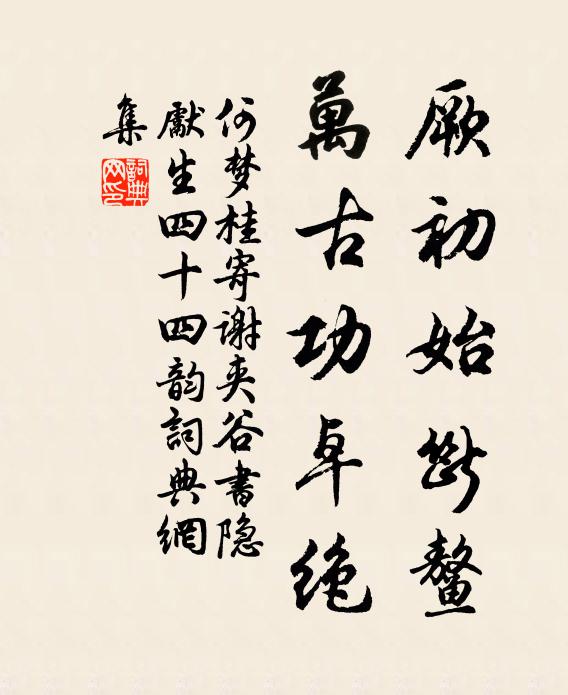 厥初始断鳌
萬古功卓绝
何梦桂寄谢夹谷書隐
獻生四十四韵詞典網
集
詞典網印